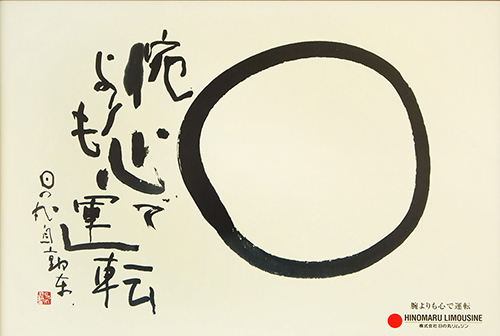 腕
よりも
心で
運転
日の丸自動車
腕よりも心で運転
HINOMARU LIMOUSINE
株式会社 日の丸リムジン